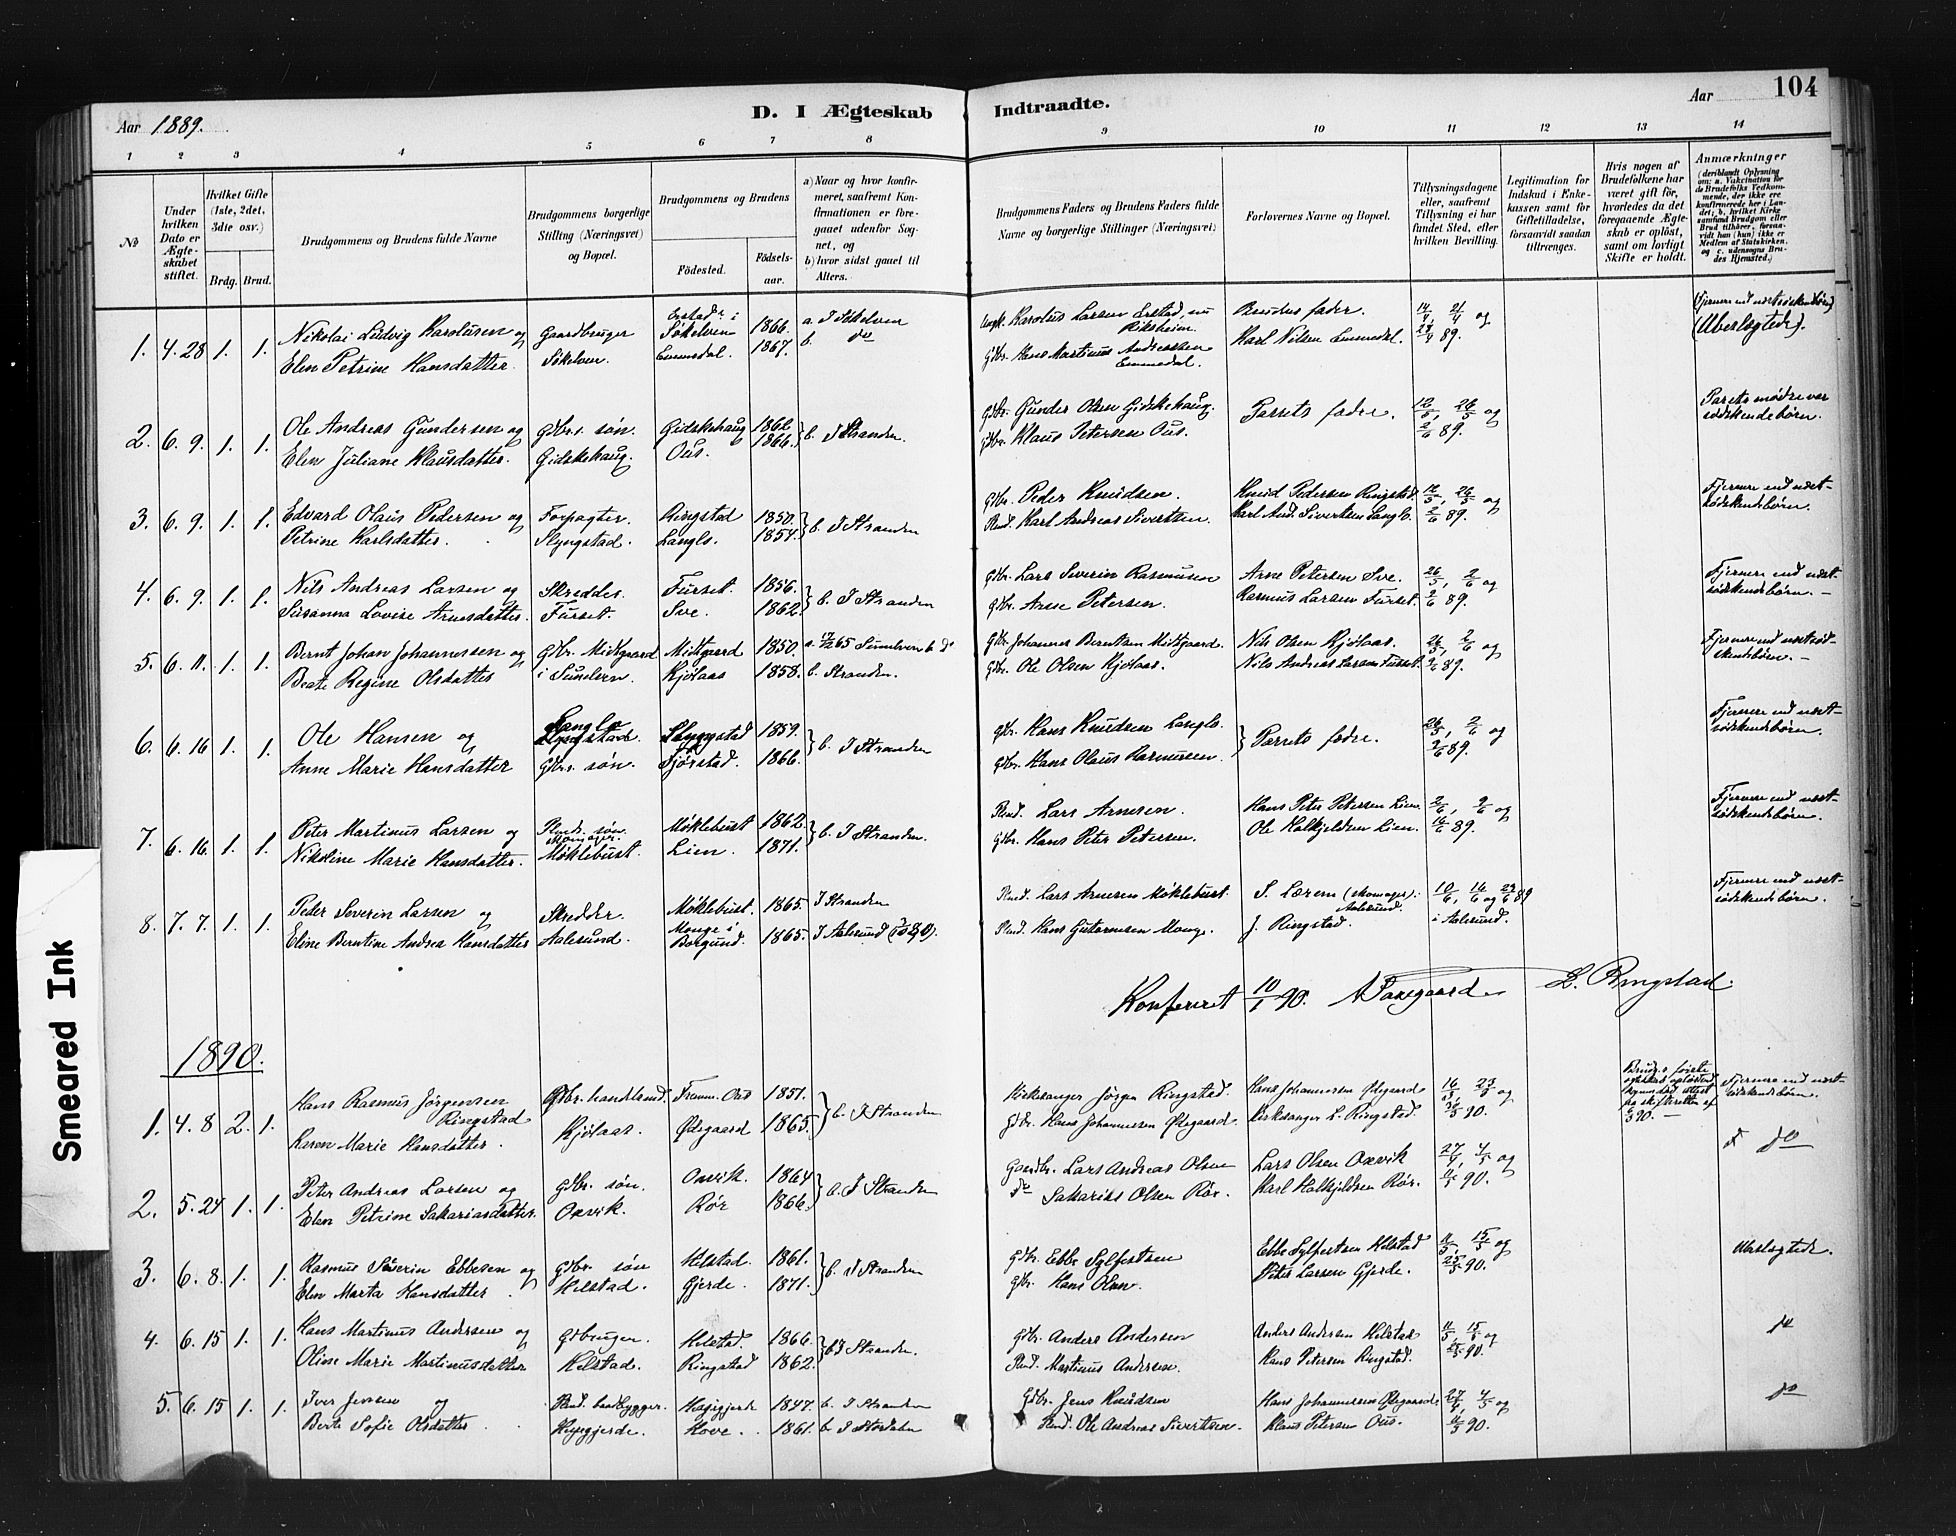 104
D. I Ægteskab Indtraadte.
Aar 1889. Aar
1 2 3 4 5 6 7 8 9 10 11 12 13 14
No
Under hvilken Dato er Ægteskabet stiftet.
Hvilket Gifte (1ste, 2det, 3die osv.)
Brdg. Brud.
Brudgommens og Brudens fulde Navne
Brudgommens borgerlige Stilling (Næringsvei) og Bopæl.
Brudgommens og Brudens
Fødested. Fødselsaar.
a) Naar og hvor konfirmeret, saafremt Konfirmationen er foregaaet udenfor Sognet, og
b) hvor sidst gaaet til Alters.
Brudgommens Faders og Brudens Faders fulde Navne og borgerlige Stillinger (Næringsvei)
Forlovernes Navne og Bopæl.
Tillysningsdagene eller, saafremt Tillysning ei har fundet Sted, efter hvilken Bevilling.
Legitimation for Indskud i Enkekassen samt for Giftetilladelse, forsaavidt saadan tiltrænges.
Hvis nogen af Brudefolkene har været gift før, hvorledes da det foregaaende Ægteskab er opløst, samt om lovligt Skifte er holdt.
Anmærkninger
1. 4.28 1. 1. Nikolai Ludvig Karolusen og Gaardbruger Søkelven 1866. a. I Søkelven
Elen Petrine Hansdatter. Søkelven. Emmedal. 1867. b. do
Karolus Larsen Brudens fader. 14/4, 21/4 og
Gdbr. Hans Martinus Andreassen Emmedal. Karl Nilsen Emmedal. 89.
(Fjernere end næstsødskendebørn)
(Ubeslægtede).
2. 6. 9. 1. 1. Ole Andreas Gundersen og Gdbr. søn. Gidskehaug 1862. b. I Stranden.
Elen Juliane Klausdatter. Gidskehaug. Ous. 1866.
Gdbr. Gunder Olsen Gidskehaug. Parrets fædre. 12/5, 26/5 og
Gdbr. Klaus Petersen Ous. 2/6 89.
Parrets mødre var sødskendebørn.
3. 6. 9. 1. 1. Edvard Olaus Pedersen og Forpagter. Ringstad 1850. b. I Stranden
Petrine Karlsdatter. Slyngstad. Langlo. 1854.
Gdbr. Peder Knudsen. Knud Pedersen Ringstad. 12/5, 26/5 og
Pend. Karl Andreas Sivertsen. Karl And. Sivertsen Langlo. 2/6 89.
Fjernere end næstsødskendebørn.
4. 6. 9. 1. 1. Nils Andreas Larsen og Skredder. Furset. 1856. b. I Stranden
Susanna Lovise Arnesdatter. Furset. Sve. 1862.
Gdbr. Lars Severin Rasmussen Arne Petersen Sve. 26/5, 2/6 og
Gdbr. Arne Petersen. Rasmus Larsen Furset. 9/6 89.
Fjernere end næstsødskendebørn. –
5. 6. 11. 1. 1. Bernt Johan Johannessen og Gbr. Midtgaard Midtgaard 1850. a. 65 Sunelven b. do
Beate Regine Olsdatter i Sunelven. Kjølaas 1858. b. Stranden.
Gdbr. Johannes Berntsen Midtgaard. Nils Olsen Kjølaas. 26/5, 2/6 og
Gdbr. Ole Olsen Kjølaas. Nils Andreas Larsen Furset. 9/6 89.
Fjernere end næstsødskendebørn. –
6. 6. 16 1. 1. Ole Hansen og Langlo Slyngstad 1859. b. I Stranden
Anne Marie Hansdatter Gdbr. søn. Fjørstad. 1866.
Gdbr. Hans Knudsen Langlo. Parrets fædre. 26/5, 2/6 og
Gdbr. Hans Olaus Rasmussen. 9/6 89.
Fjernere end næstsødskendebørn.
7. 6. 16. 1. 1. Peter Martinus Larsen og Pends. søn. Møklebust 1862. b. I Stranden.
Nikoline Marie Hansdatter. Møklebust. Lien. 1871.
Pend. Lars Arnesen. Hans Peter Petersen Lien. 2/6, 9/6 og
Gdbr. Hans Peter Petersen. Ole Halkjeldsen Lien. 16/6 89.
Fjernere end næstsødskendebørn.
8. 7. 7. 1. 1. Peter Severin Larsen og Skredder. Møklebust. 1865. I Stranden
Eline Berntine Andrea Hansdatter Aalesund. Monge i Borgund. 1865. I Aalesund
Pend. Lars Arnesen Møklebust. (skomager) Aalesund. 10/6, 16/6 og 89
Pend. Hans Guttormsen Monge. J. Ringstad. i Aalesund.
Fjernere end næstsødskendebørn.
Konfereret 10/1 90. L. Ringstad.
1890.
1. 4. 8 2. 1. Hans Rasmus Jørgensen Ringstad Gdbr. handlend. Ous 1851. b. I Stranden
Karen Marie Hansdatter. Kjølaas. Ødegaard 1865.
Kirkesanger Jørgen Ringstad. Hans Johannessen Ødegaard og
Gdbr. Hans Johannessen Ødegaard. Kirkesanger L. Ringstad. 90.
Fjernere end næstsødskendebørn.
2. 5. 24 1. 1. Peter Andreas Larsen og Gdbr. søn. Oxvik. 1864 b. I Stranden
Elen Petrine Sakariasdatter. Oxvik. Rør 1866.
Gaardbr. Lars Andreas Olsen Lars Olsen Oxvik 27/4, 4/5 og
do Sakarias Olsen Rør. Karl Halkjeldsen Rør. 11/5 90.
do
3. 6. 8. 1. 1. Rasmus Severin Ebbesen og Gdbr. søn Helstad. 1861. b. I Stranden
Elen Marta Hansdatter. Helstad. Gjerde. 1871.
Gdbr. Ebbe Sylfestsen Ebbe Sylfestsen Helstad 11/5, 15/5 og
Gdbr. Hans Olsen. Peter Larsen Gjerde. 25/5 90.
Ubeslægtede.
4. 6. 15 1. 1. Hans Martinus Andersen og Gdbruger. Helstad. 1866. b. I Stranden.
Oline Marie Martinusdatter Helstad. Ringstad 1862.
Gdbr. Anders Andersen Anders Andersen Helstad 11/5, 15/5 og
Pend. Martinus Andersen. Hans Petersen Ringstad. 25/5 90.
do
5. 6. 15 1. 1. Iver Jensen og 1847. b. I Stranden
Berte Sofie Olsdatter. Hove. 1861. b. I Stordalen
Gdbr. Jens Knudsen Hans Johannessen Ødegaard 27/4, 4/5 og
Pend. Ole Andreas Sivertsen. Klaus Petersen Ous. 11/5 90.
do
Smeared Ink